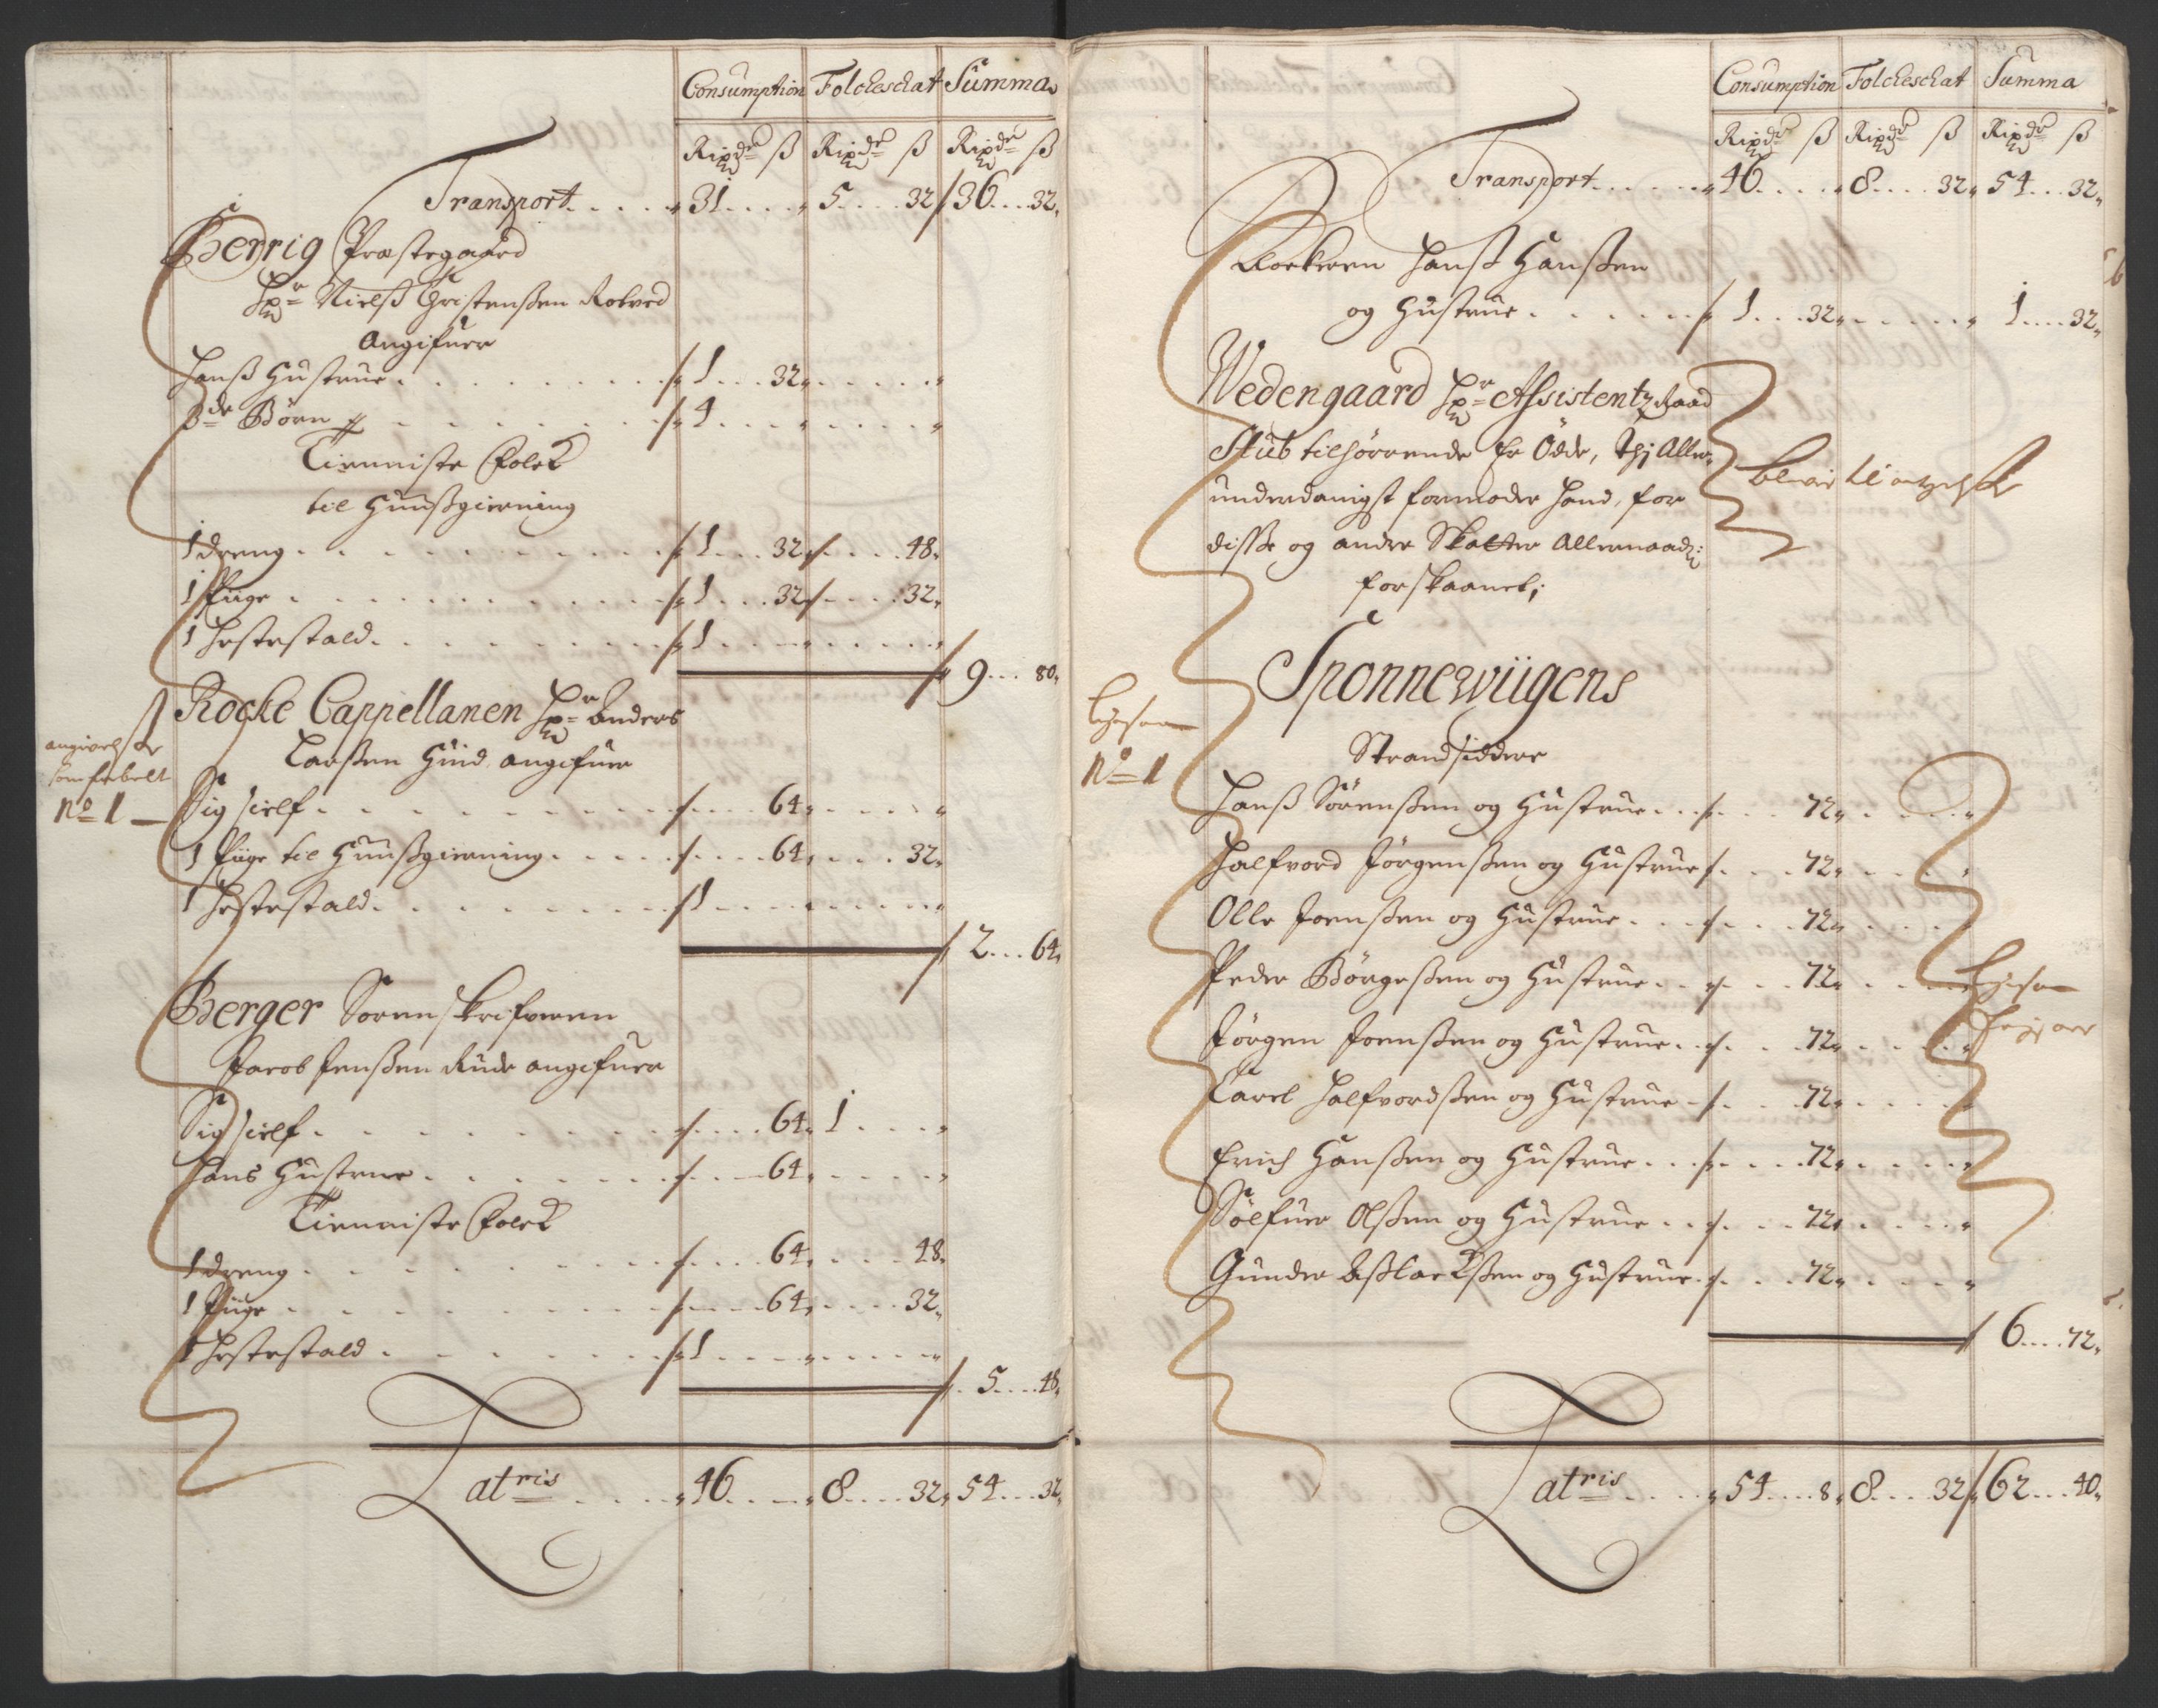 Consumption Folckeschat Summa
Rixdr ß Rixdr ß Rixdr ß
Transport 31 5 32 36 32
Berrig Præstegaard
Hr Nielß Christenßen
Angifuer
Hanß Hustrue 1 32
3de Børn 4
Tienniste Folck
til Huußgierning
1 dreng 1 32 48
1 Piige 1 32 32
1 Hestestald 1
9 80
Rocke Cappellanen Hr Anders
Larßen Hiud angifuer
No 1
Sig sielf 64
1 Piige til Huußgierning 64 32
1 Hestestald 1
2 64
Berger Sorenskrifveren
Jacob Jenßen Rude angifuer
Sig sielf 64 1
Hans Hustrue 64
Tienniste Folck
1 dreng 64 48
1 Piige 64 32
1 Hestestald 1
5 48
Latris 46 8 32 54 32
Consumption Folckeschat Summa
Rixdr ß Rixdr ß Rixdr ß
Transport 46 8 32 54 32
Klockeren Hanß Hanßen
og Hustrue 1 32 1 32
Wedengaard Hr Assistentz Raad
Stub tilhørende Er Öde, thj Aller
underdanigst formoder hand, for
disse og andre Skatter Allernaadl:
forskaanet;
Sponnewiigens
Strandsiddere
No 1
Hanß Sörenßen og Hustrue 72
Halfvord Jörgenßen og Hustrue 72
Olle Joenßen og Hustrue 72
Peder Börgeßen og Hustrue 72
Jörgen Joenßen og Hustrue 72
Carel Halfvordßen og Hustrue 72
Erich Hanßen og Hustrue 72
Sölfuer Olßen og Hustrue 72
Gunder Aßlackßen og Hustrue 72
6 72
Latris 54 8 8 32 62 40